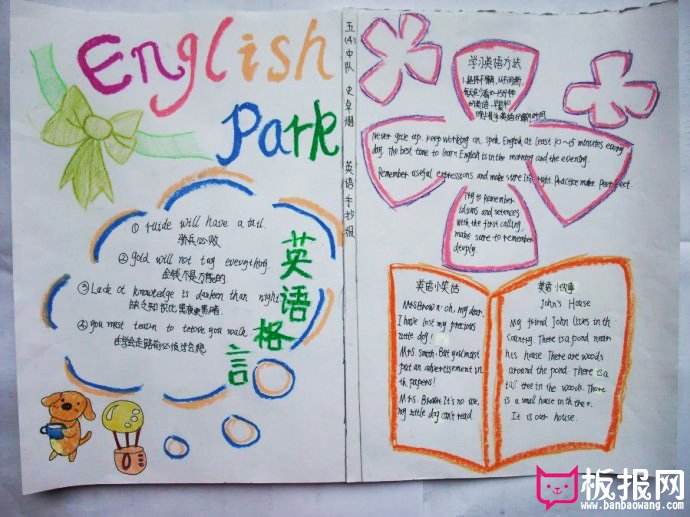 English
Park
五(4)中队 史卓 英语手抄报
① will have a tail.
骄兵必败.
② gold will not everything.
金钱不是万能的.
③ Lack of knowledge is than night
缺乏知识比黑夜更黑暗.
④ you must to you walk.
在学会走路前必须学会爬.
英语格言
学习英语方法
Never give up, keep working on, speak English at least 10~15 minutes every
day. The best time to learn English is in the morning and the evening.
Remember useful expressions, and make sure its right. Practice make perfect.
Try to Remember
idioms and
with the first calling,
make sure to remember
deeply.
英语小笑话
Mrs Brown: oh, my dear,
I have lost my precious
little dog!
Mrs. Smith: But you must
put an advertisement in
the papers!
Mrs. Brown: It's no use,
my little dog can't read.
英语小故事
John's House
My friend John lives in th
Country. There is a pond near
his house. There are woods
around the pond. There is a
tall tree in the woods. There
is a small house in the tree.
It is our house.
板报网
www.banbaowang.com